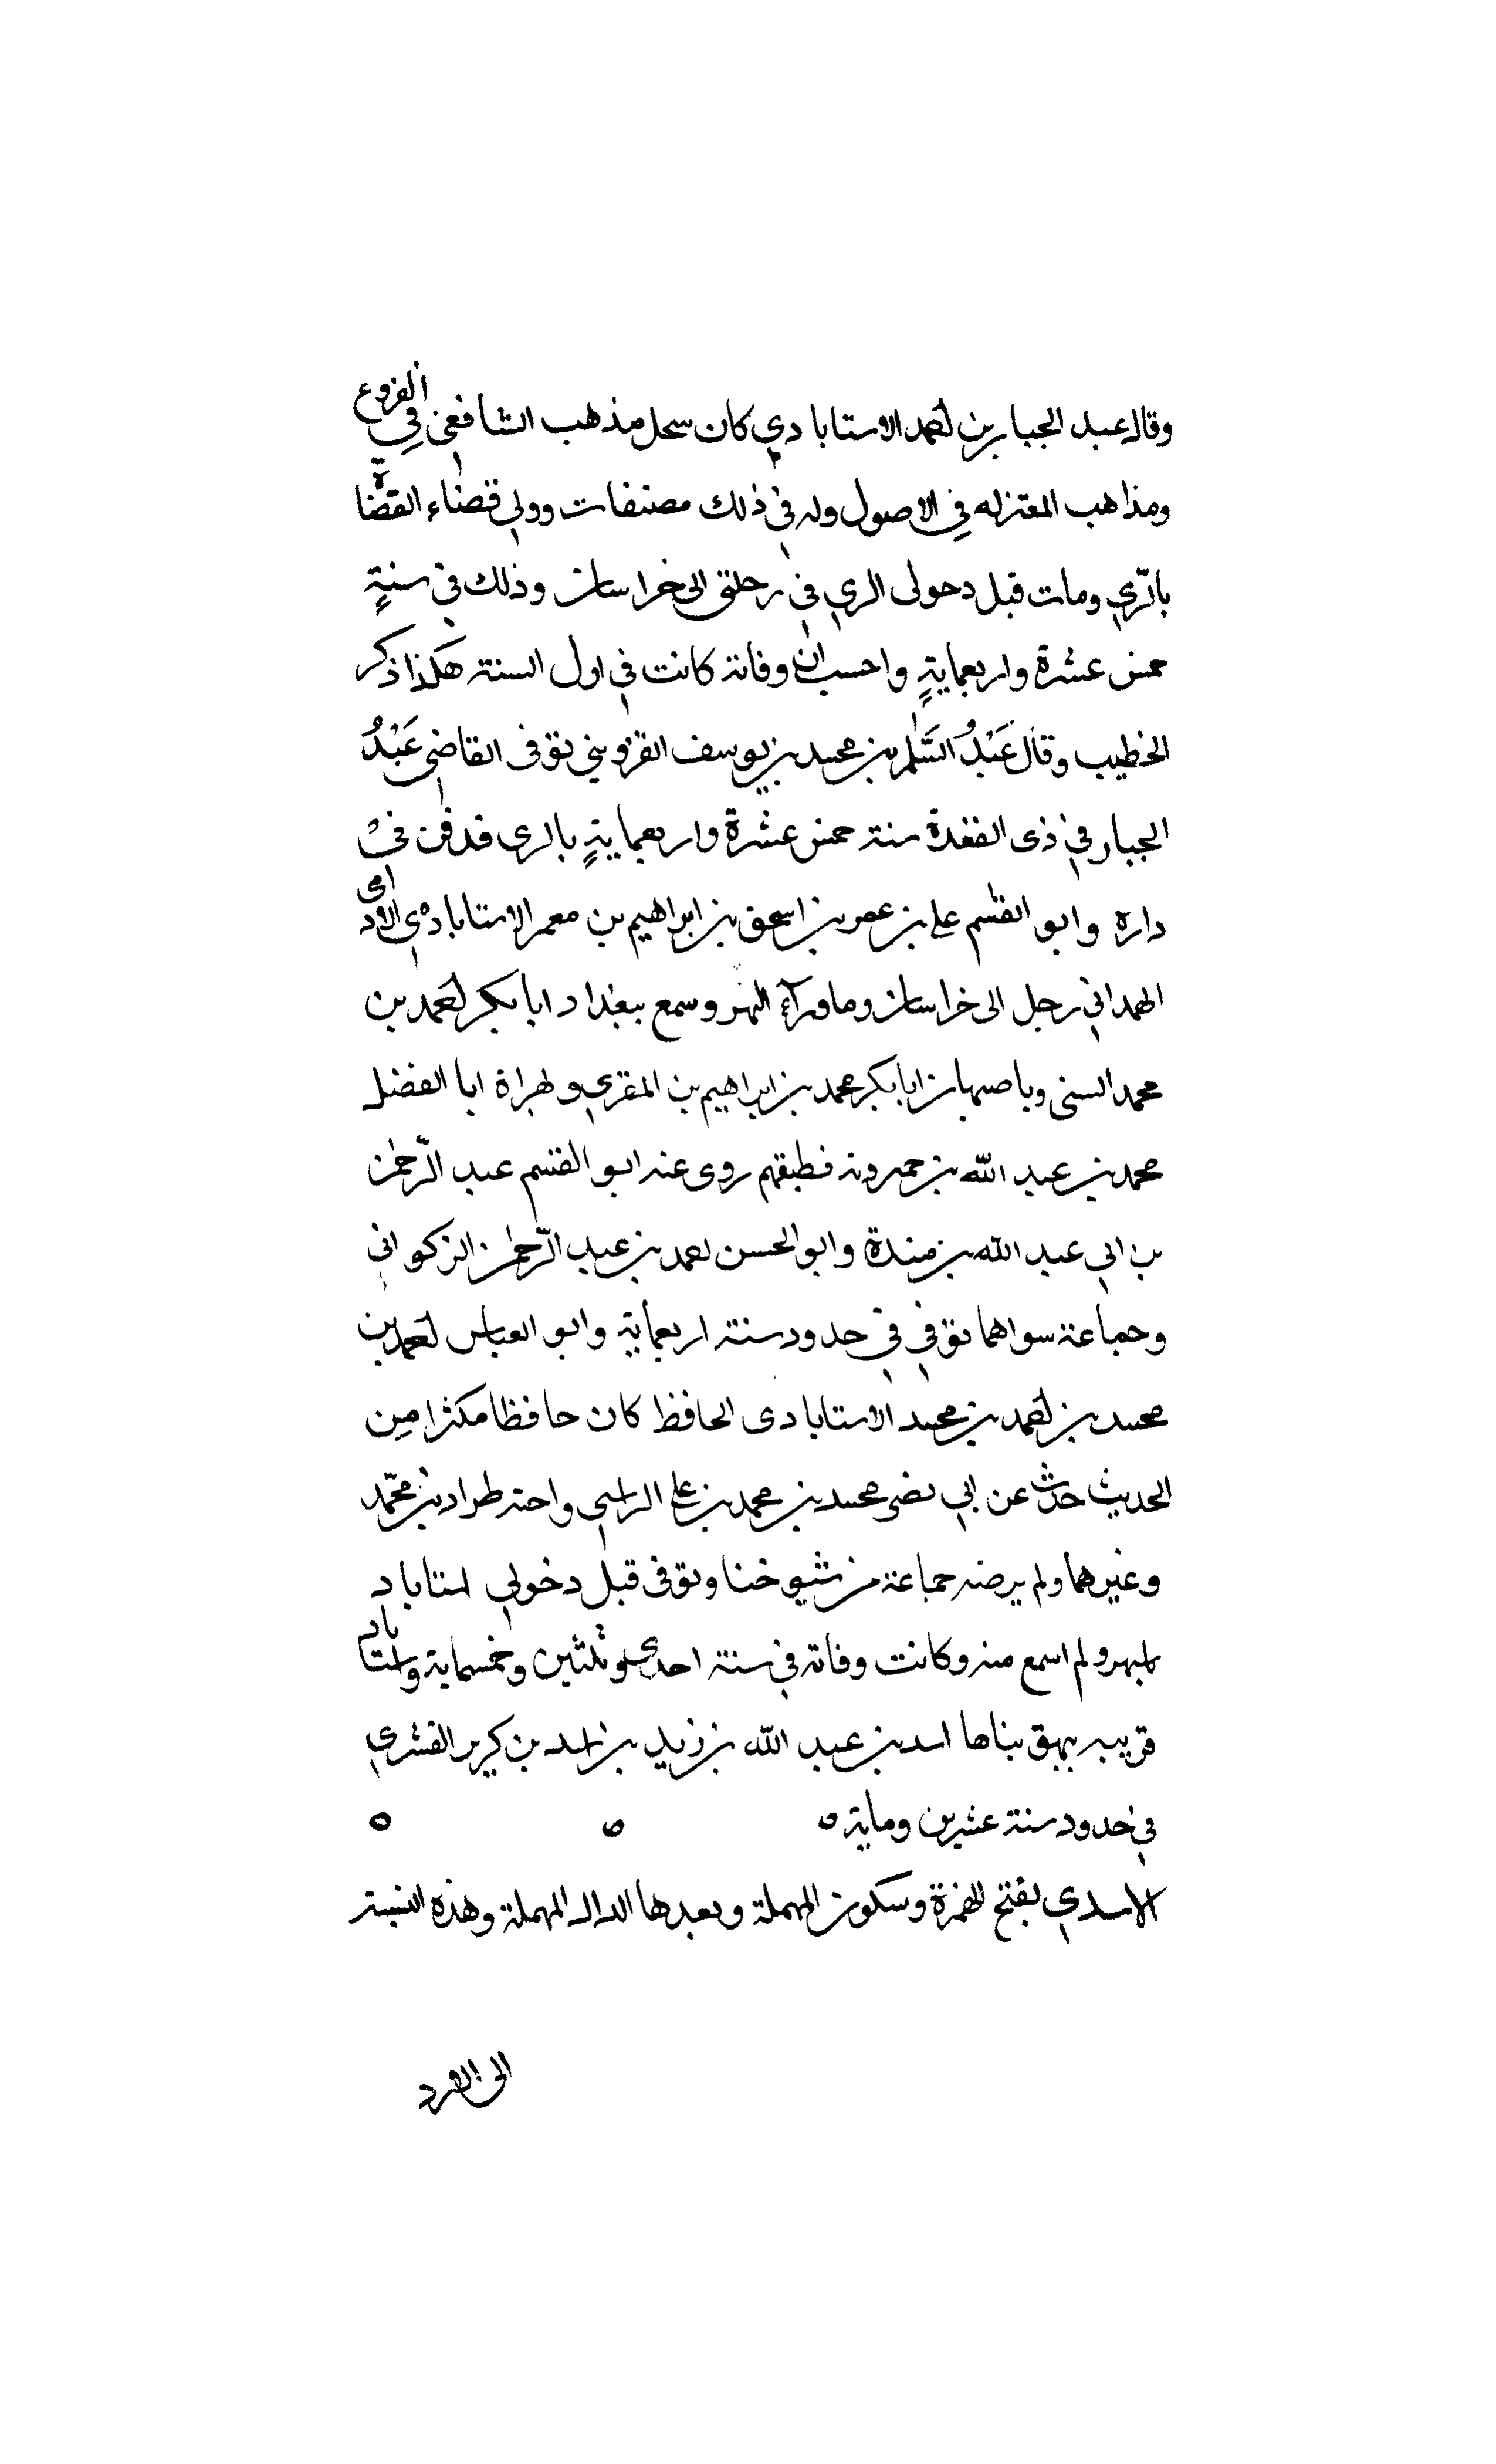 وقال عبد الجبار بن احمد الاستاباذي كان ينتحل مذهب الشافعي في الفروع
ومذاهب المعتزله في الاصول وله في ذلك مصنفات وولي قضاء القضاة
بالري ومات قبل دخولى الري في رحلتي الى خراسان وذلك في سنة
خمس عشرة واربعماية واحسب ان وفاته كانت في اول السنة هكذا ذكر
الخطيب وقال عَبْدُ السَّلم بن محمد بن يوسف القزويني توفى القاضي عَبْدُ
الجبار في ذى القعدة سنة خمس عشرة واربعماية بالرى فدفن في
داره وابو القسم علي بن عمر بن اسحق بن ابراهيم بن معمر الاستاباذي
الهمداني رحل الى خراسان وما ورآء النهر وسمع ببغداد ابا بكر احمد بن
محمد السنى وباصبهان ابا بكر محمد بن ابراهيم بن المقري وبهراة ابا الفضل
محمد بن عبد الله بن خميرويه فطبقتهم روى عنه ابو القسم عبد الرحمن
بن ابي عبد الله بن مندة وابو الحسن احمد بن عبد الرحمن الزكواني
وجماعة سواهما توفي في حدود سنة اربعماية وابو العباس احمد بن
محمد بن احمد بن محمد الاستاباذى الحافظ كان حافظا مكثرا من
الحديث حدث عن ابي نصر محمد بن محمد بن علي واخيه طراد بن محمد
وغيرهما ولم يرضه جماعة من شيوخنا وتوفى قبل دخولي استاباد
ولم اسمع منه وكانت وفاته في سنة احدى وثلثين وخمسماية واستاباد
قريبه ببيهق بناها اسد بن عبد الله بن زيد بن اسد بن كريز القشري
في حدود سنة عشرين وماية ٥ ٥ ٥
الاسدي بفتح الهمزة وسكون المهملة وبعدها الدال المهملة وهذه النسبة
الى الازد